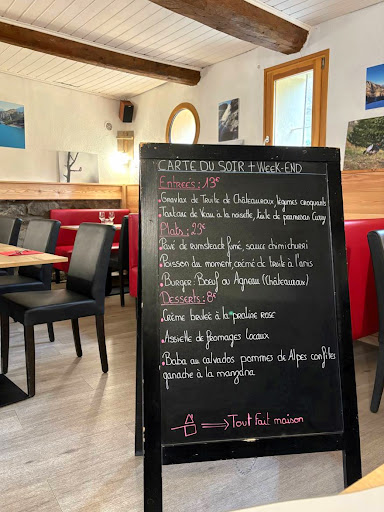 CARTE DU SOIR + WEEK-END
ENTREES: 13€
Gravlax de Truite de Châteauroux, légumes croquants
Tartare de Veau à la noisette, huile de parmesan Curry
Plats: 23€
Pavé de rumsteack fumé, sauce chimichurri
Poisson du moment, crème de truite à l'anis
Burger: Bœuf ou Agneau (Châteauroux)
DESSERTS: 8€
CRÈME brulée à la praline rose
ASSIETTE de fromages locaux
Baba au calvados pommes de Alpes confites
ganache à la
Tout Fait maison